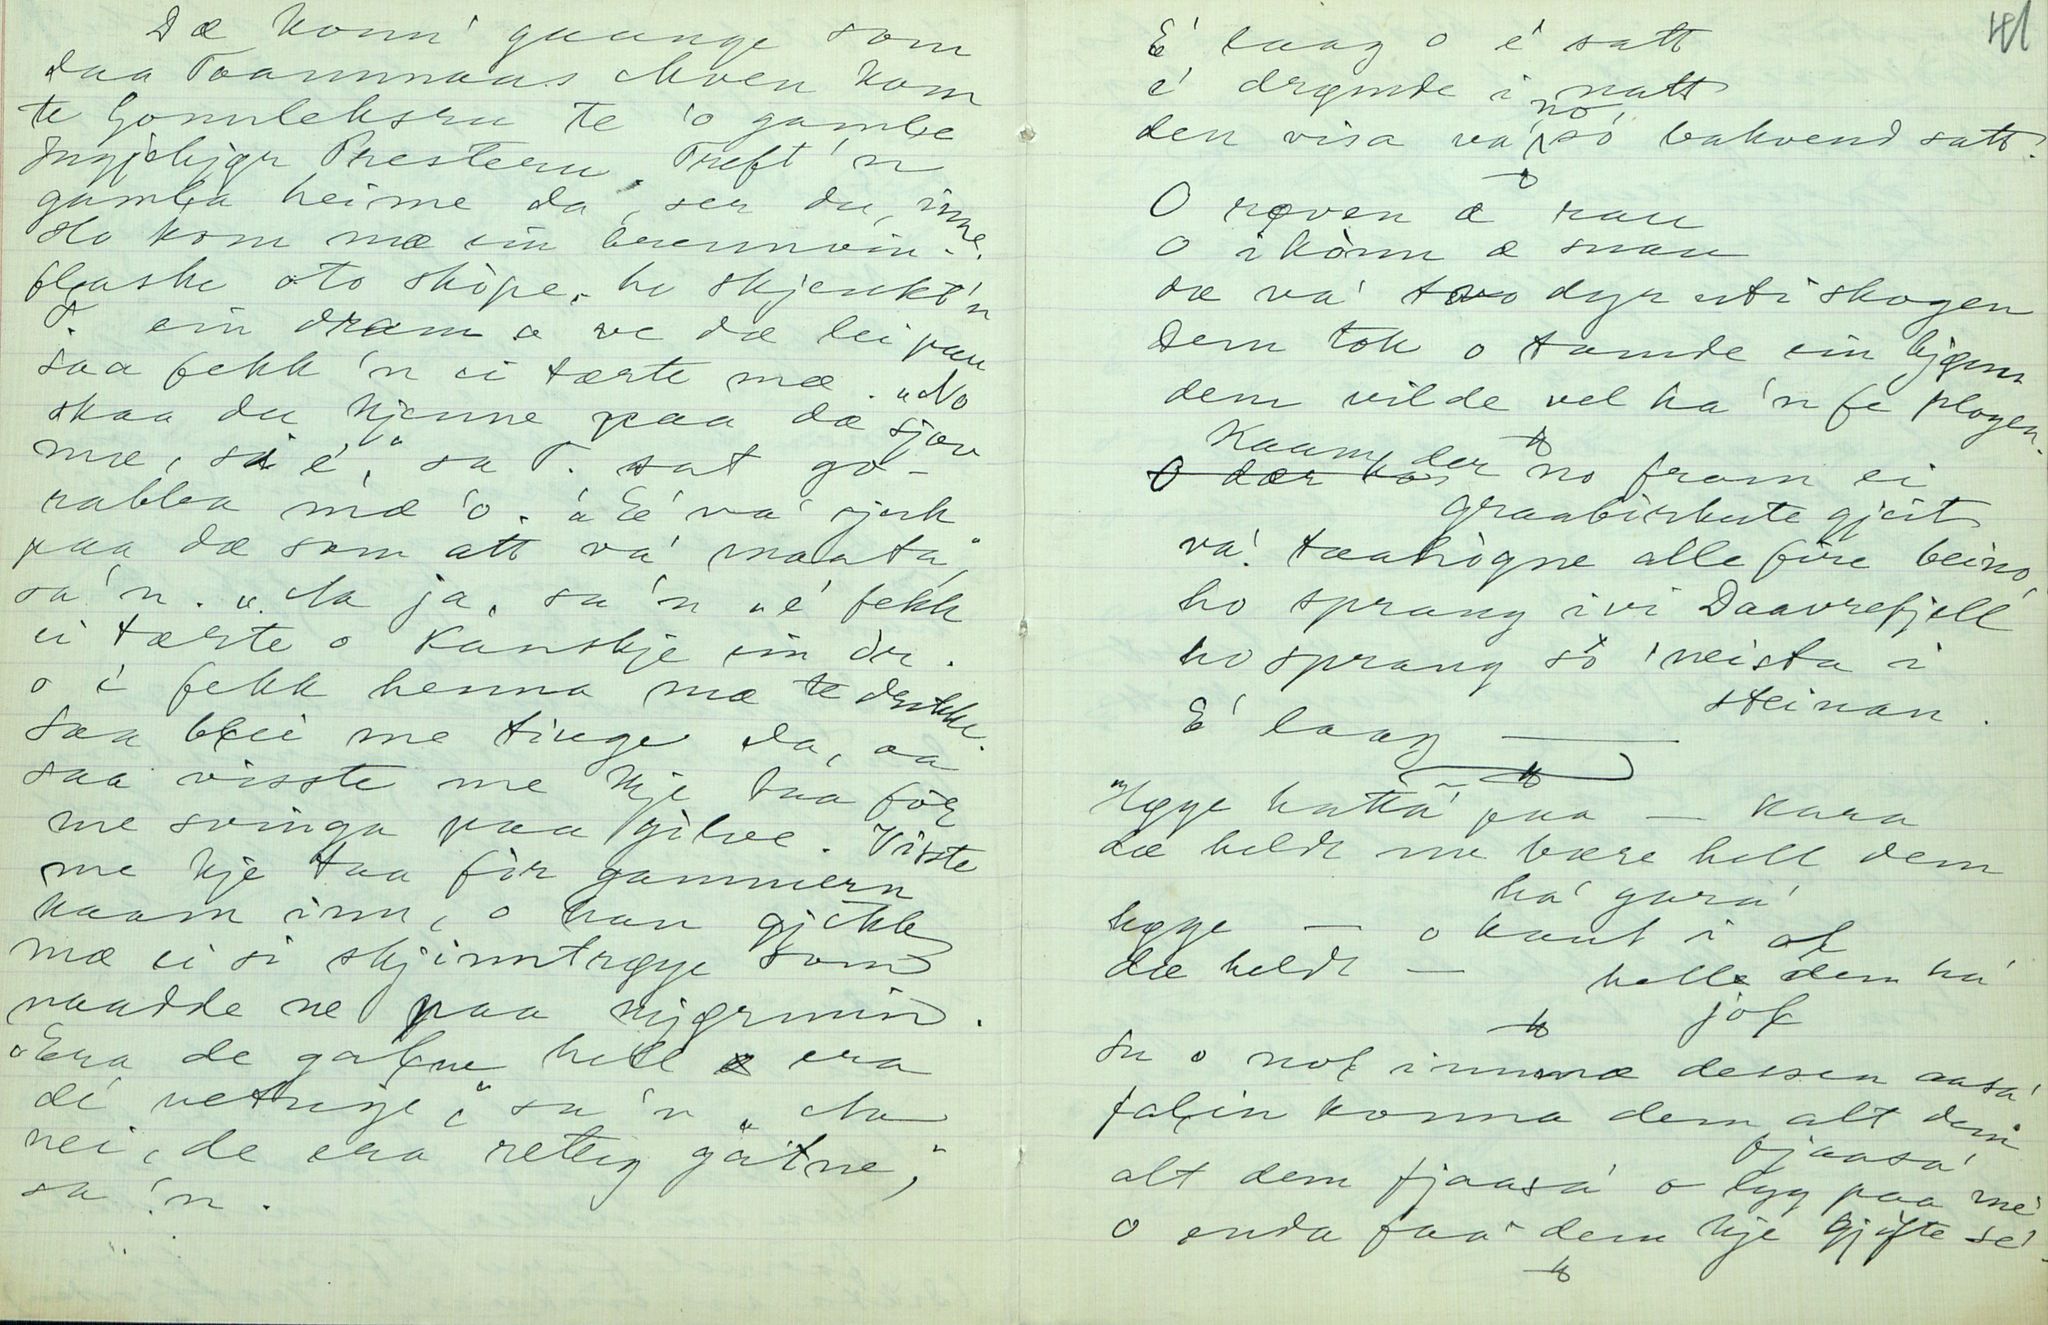 Dæ konn' gaange som
daa Taammaas Moen kom
te Gonnleksru te 'o gambe
Ingjebjør Presteru. Treft 'n
gamļa heime da, ser du, inne.
Ho kom mæ ein brennvin-
fļaske oto skåpe. ho skjenkt'n
T ein dram o ve dæ lei pau
saa fekk 'n ei tærte mæ. "No
skaa du kjenne paa dæ sjøv
mæ, si é," sa T. sat go-
rabbla mæ 'o. "É va' sjuk
paa dæ som att va' maata,"
sa 'n. "Aa ja, sa 'n "é fekk
ei tærte o kanskje ein dr.
o é fekk henna mæ te drikke.
Saa bļei me tinge da, aa
saa visste me kje taa för
me svinga paa gôļve. Visste
me kje taa för gammern
kaam inn, o han gjekk
mæ ei si skjinntrøye som
naadde ne paa kjørmin.
"Era de gaļne hell era
dé vetuge," sa 'n "Aa
nei, de era rettig gaļne,"
sa 'n.
41
É laag o é satt
é drømde i natt
den visa va' no så bakvend satt.
O røven æ rau
O ikònn æ snau
dæ va' to dyr uti skogen
Dem tok o tamde ein bjønn
dem vilde vel ha 'n fe plogen.
Kaam der no fram ei
graabirkute gjeit
va' taahògne alle fire beino
ho sprang ivi Daavrefjell
ho sprang så 'neista i
steinan.
É laag ——
"Høgge hatta' paa — kara
dæ heldt me bære hell dem
ha' gara'
høgge — o kaut i oļ
dæ heldt — helle dem ha'
joļ
Su o noļ innmæ dessen aasa'
faļin konna dem alt dem
fjaasa'
alt dem fjaasa' o lyg paa mé
o enda faa dem kje gjifte sé.